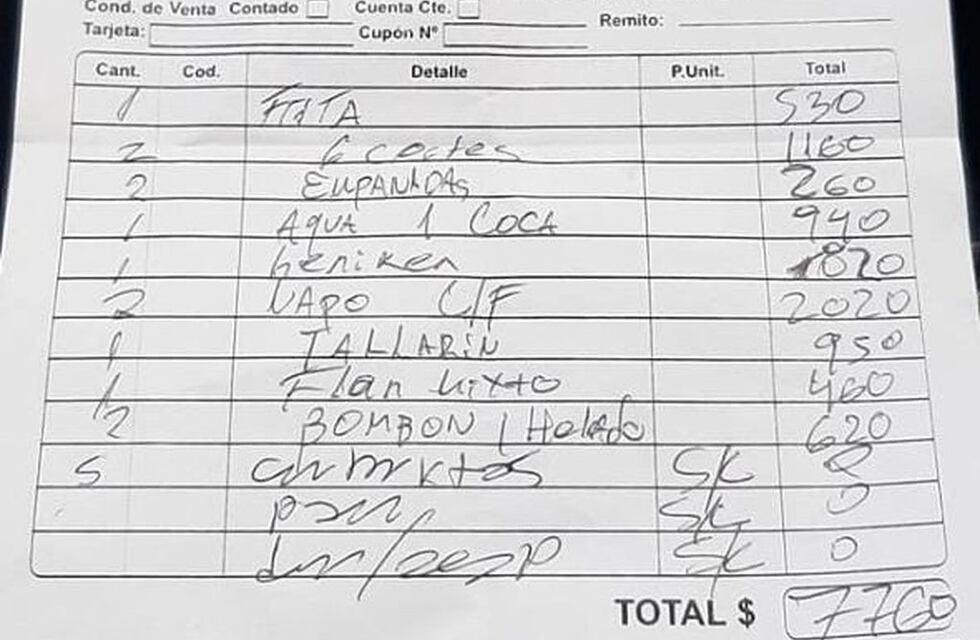 Cond. de Venta Contado Cuenta Cte.
Tarjeta: Cupón Nº Remito:
Cant. Cod. Detalle P.Unit. Total
1 530
2 1160
2 EMPANADAS 260
1 AQUA 1 COCA 940
1 heniken 1820
2 C/F 2020
1 TALLARIN 950
1 Flan Mixto 460
2 BOMBON 1 Helado 620
5 SK 0
pan SK 0
SK 0
TOTAL $ 7760